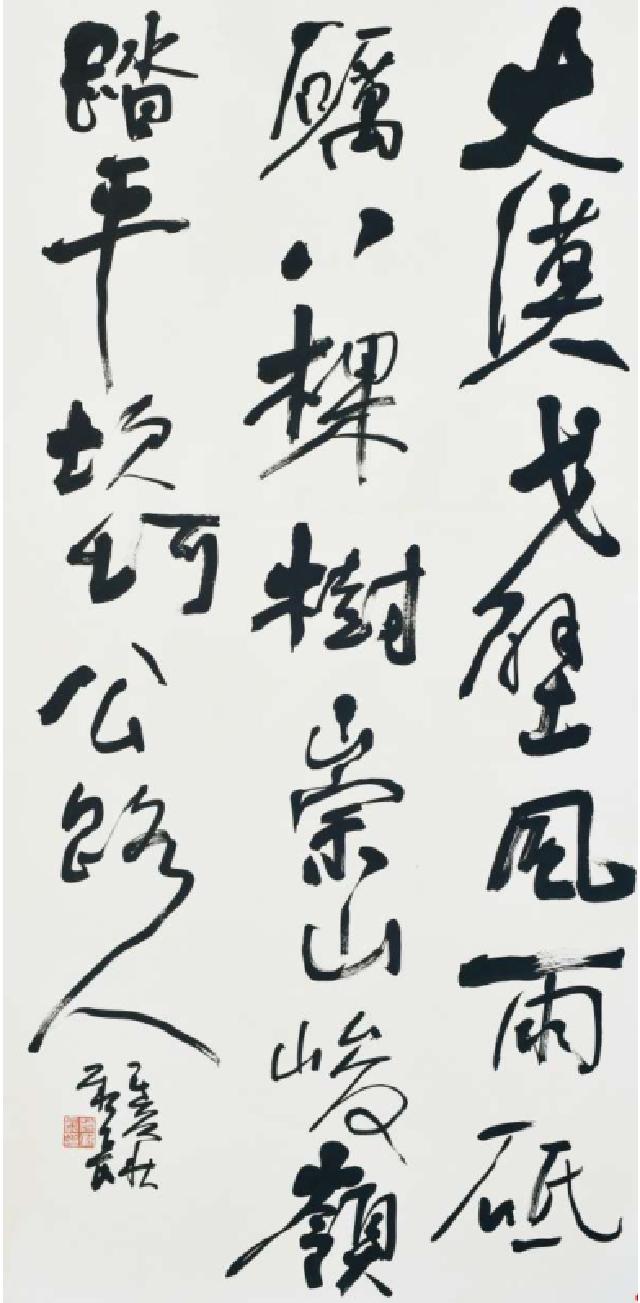 大漠戈壁風雨砥
礪八棵樹崇山峻嶺
踏平坎坷公路人